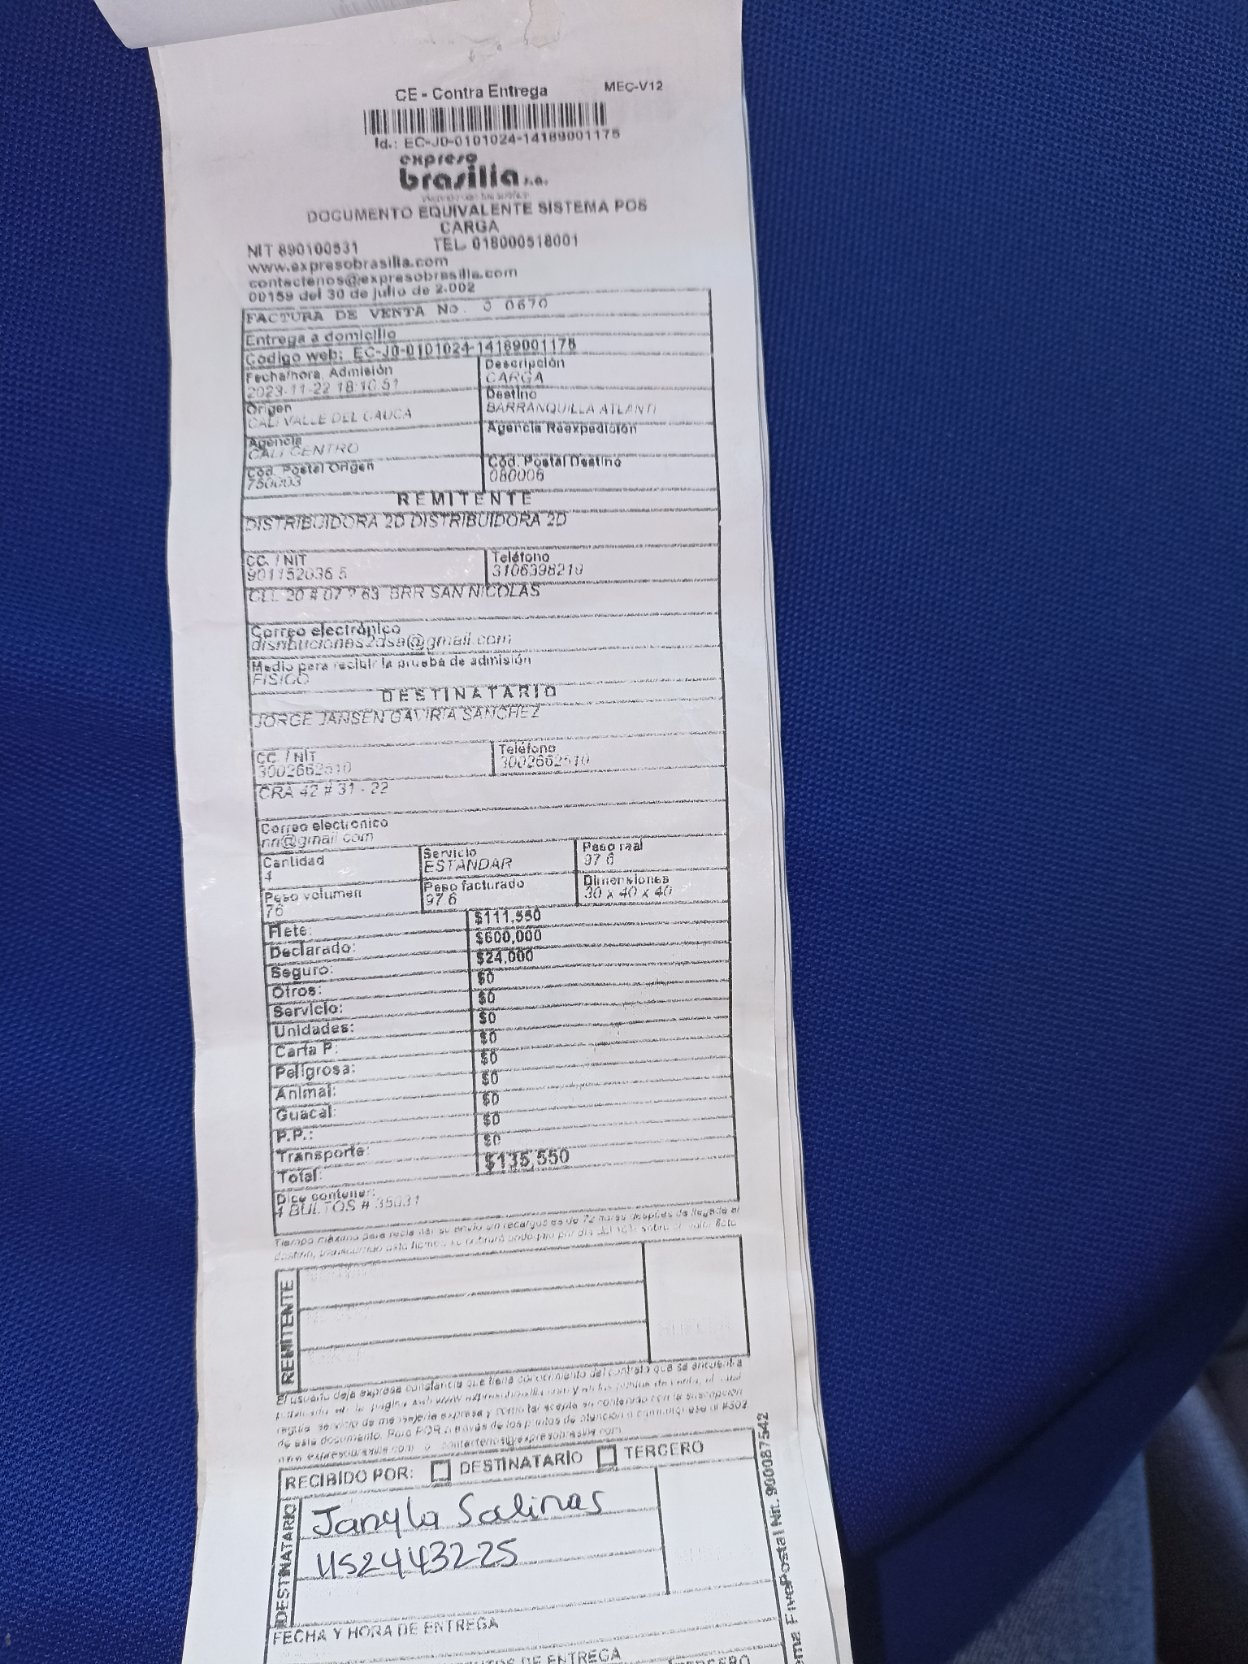 CE - Contra Entrega MEC-V12
Id.: EC-J0-0101024-14189001175
expreso
brasilia s.a.
DOCUMENTO EQUIVALENTE SISTEMA POS
CARGA
NIT 890100531 TEL. 018000518001
www.expresobrasilia.com
contactenos@expresobrasilia.com
00159 del 30 de julio de 2.002
FACTURA DE VENTA No. 0670
Entrega a domicilio
Codigo web: EC-J0-0101024-14189001175
Fecha/hora Admisión Descripción
2023-11-22 18:10:51 CARGA
Origen Destino
CALI VALLE DEL CAUCA BARRANQUILLA ATLANTI
Agencia Agencia Reexpedición
CALI CENTRO
Cód. Postal Origen Cód. Postal Destino
760003 080006
REMITENTE
DISTRIBUIDORA 2D DISTRIBUIDORA 2D
CC. / NIT Teléfono
901152036 5 3106398219
CLL 20 # 07 ? 63 BRR SAN NICOLAS
Correo electrónico
distribuciones2dsa@gmail.com
Medio para recibir la prueba de admisión
FISICO
DESTINATARIO
JORGE JANSEN GAVIRIA SANCHEZ
CC. / NIT Teléfono
3002662510 3002662510
CRA 42 # 31 - 22
Correo electronico
nn@gmail.com
Cantidad Servicio Peso real
4 ESTANDAR 97.6
Peso volumen Peso facturado Dimensiones
76 97.6 30 x 40 x 40
Flete: $111,550
Declarado: $600,000
Seguro: $24,000
Otros: $0
Servicio: $0
Unidades: $0
Carta P: $0
Peligrosa: $0
Animal: $0
Guacal: $0
P.P.: $0
Transporte: $0
Total: $135,550
Dice contener:
4 BULTOS # 35031
Tiempo máximo para reclamar su envío sin recargos es de 72 horas después de llegada al
destino,
REMITENTE
El usuario deja expresa constancia que tiene conocimiento del contrato que se encuentra
publicado en la página web
regula servicio de mensajería expresa y como tal acepta su contenido con la suscripción
de este documento. Para PQR a través de los puntos de atención
www.expresobrasilia.com o contactenos@expresobrasilia.com
RECIBIDO POR: DESTINATARIO TERCERO
DESTINATARIO
Jangla Salinas
1152443225
FECHA Y HORA DE ENTREGA
DE ENTREGA
TERCERO
FivePostal Nit. 900087542